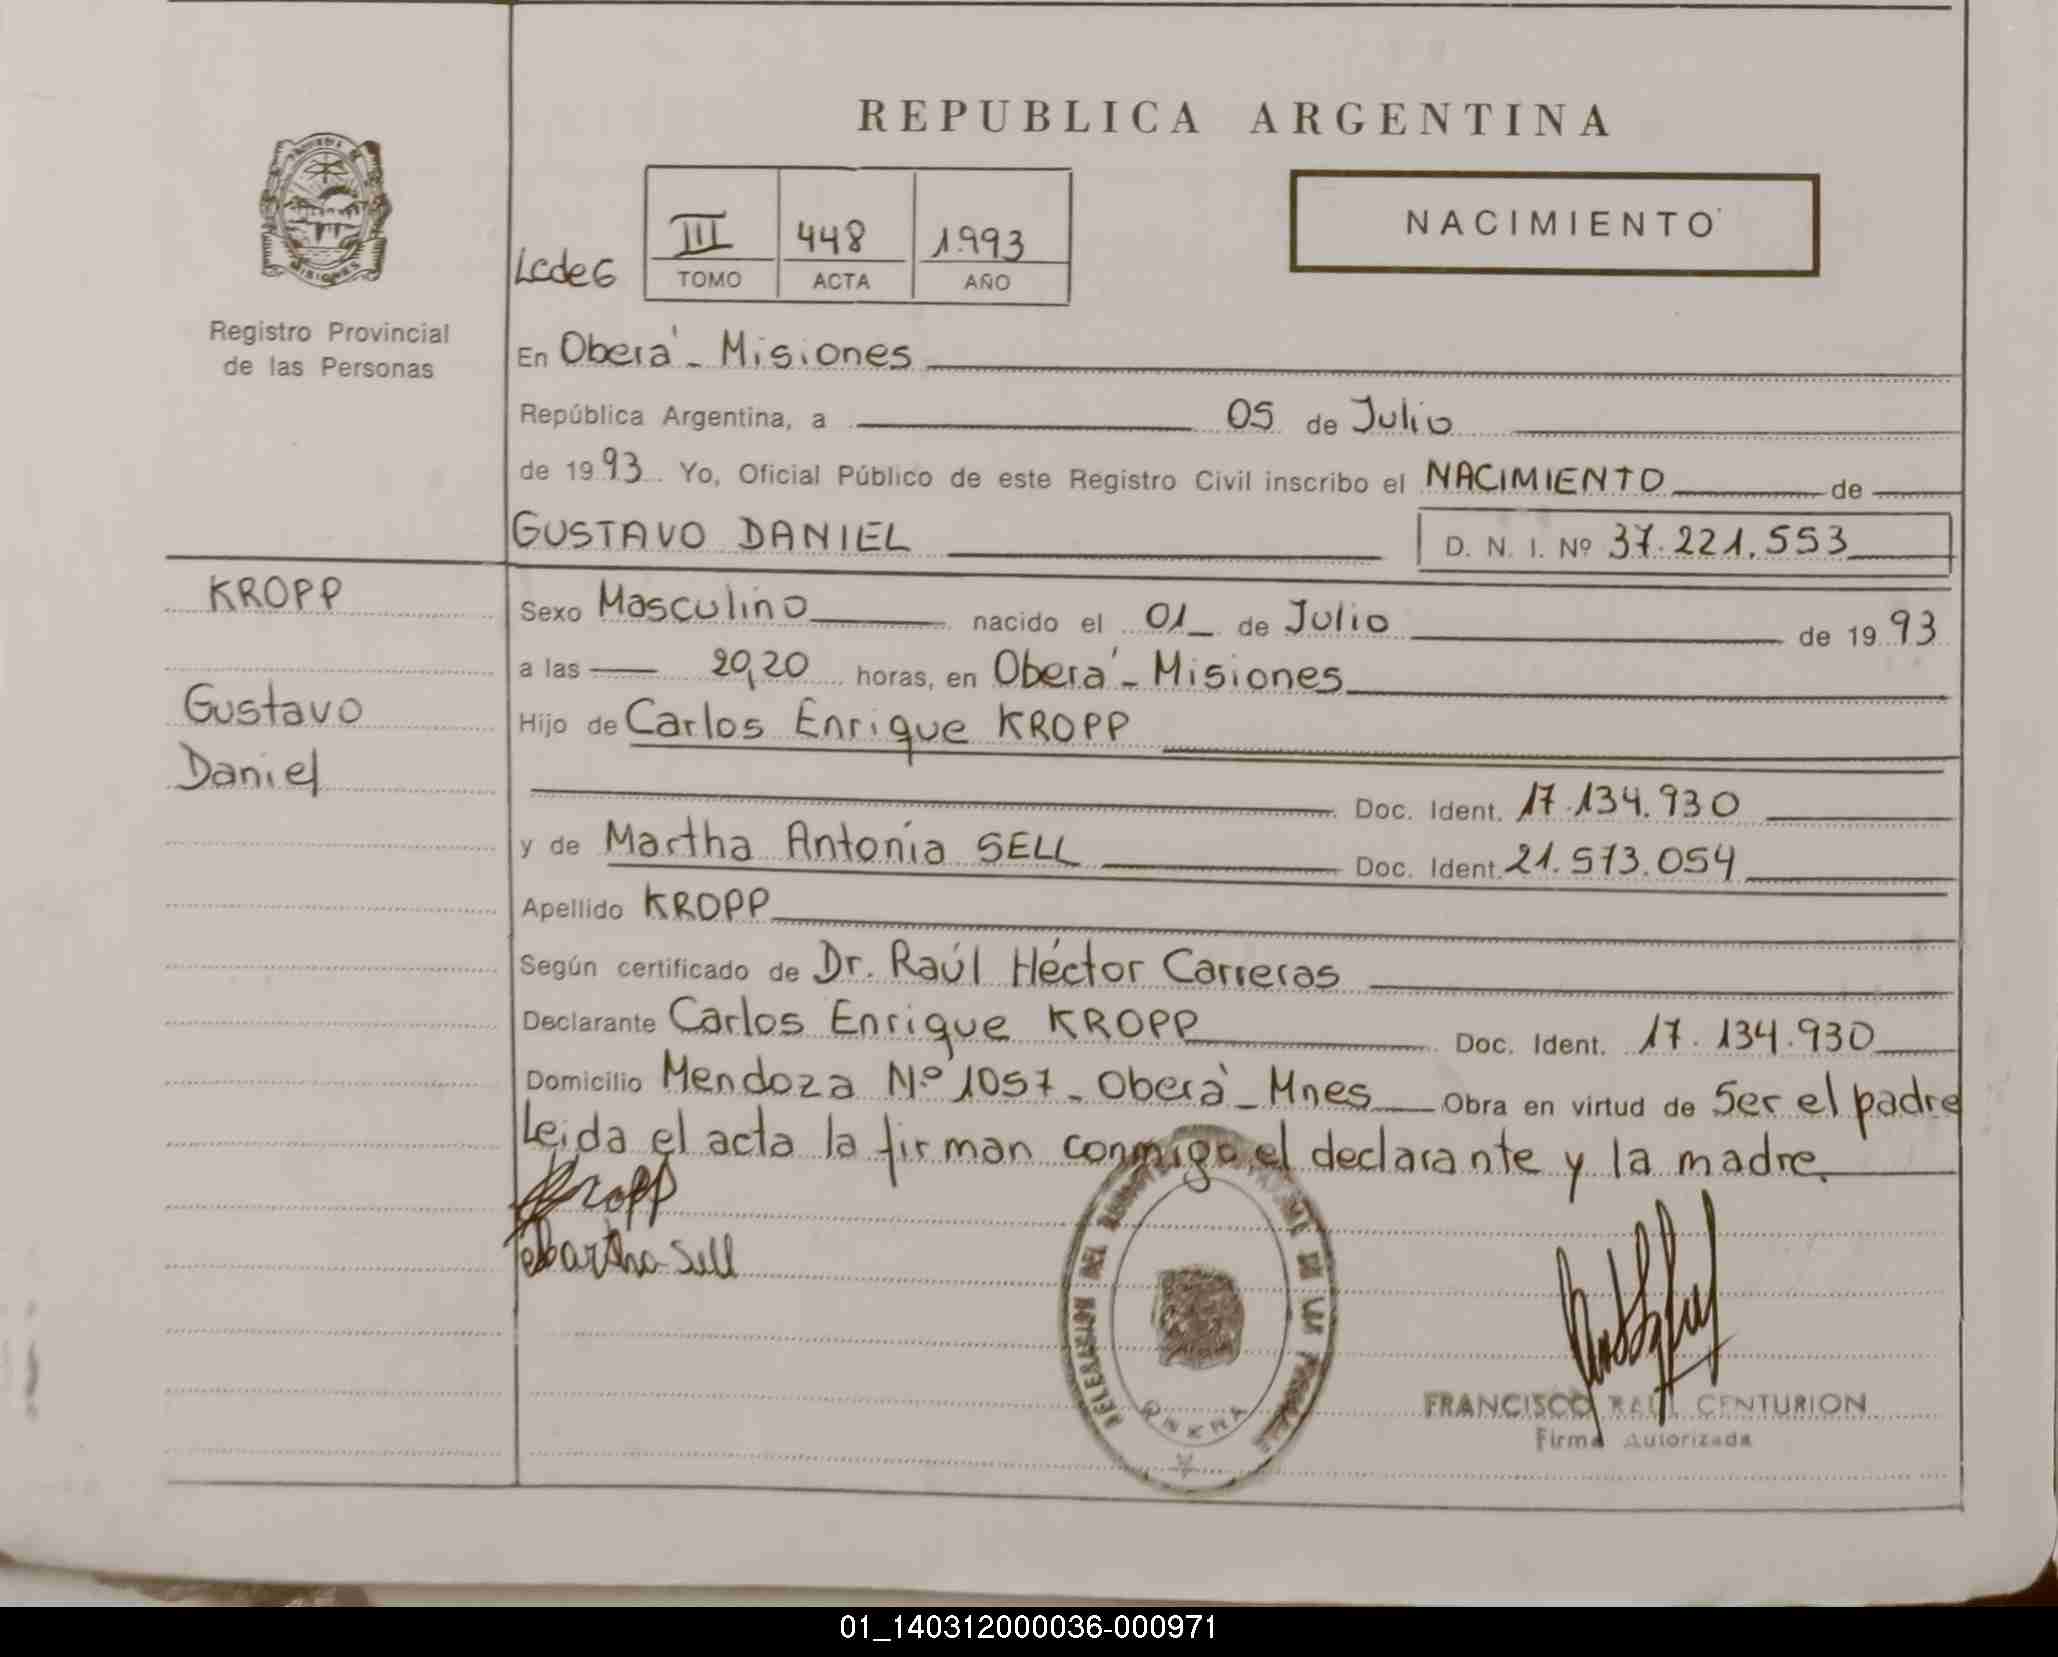 REPUBLICA ARGENTINA
NACIMIENTO
III 448 1.993
TOMO ACTA AÑO
MISIONES
Registro Provincial
de las Personas
En Oberá - Misiones
República Argentina, a 05 de Julio
de 1993 Yo, Oficial Público de este Registro Civil inscribo el NACIMIENTO de
GUSTAVO DANIEL D. N. I. Nº 37.221.553
KROPP
Gustavo
Daniel
Sexo Masculino nacido el 01 de Julio de 1993
a las 20,20 horas, en Oberá - Misiones
Hijo de Carlos Enrique KROPP
Doc. Ident. 17.134.930
y de Martha Antonia SELL Doc. Ident. 21.573.054
Apellido KROPP
Según certificado de Dr. Raúl Héctor Carreras
Declarante Carlos Enrique KROPP Doc. Ident. 17.134.930
Domicilio Mendoza Nº 1057 - Oberá - Mnes Obra en virtud de Ser el padre
Leida el acta la firman conmigo el declarante y la madre.
Kropp
Martha Sell
FRANCISCO RAUL CENTURION
Firma Autorizada
01_140312000036-000971